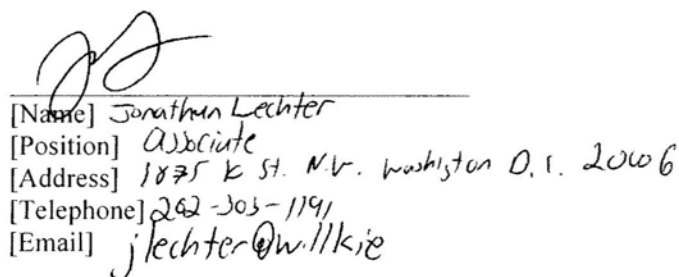 [Name] Jonathan Lechter
[Position] Associate
[Address] 1875 K St. N.W. Washigton D.C. 20006
[Telephone] 202-303-1191
[Email] jlechter@willkie